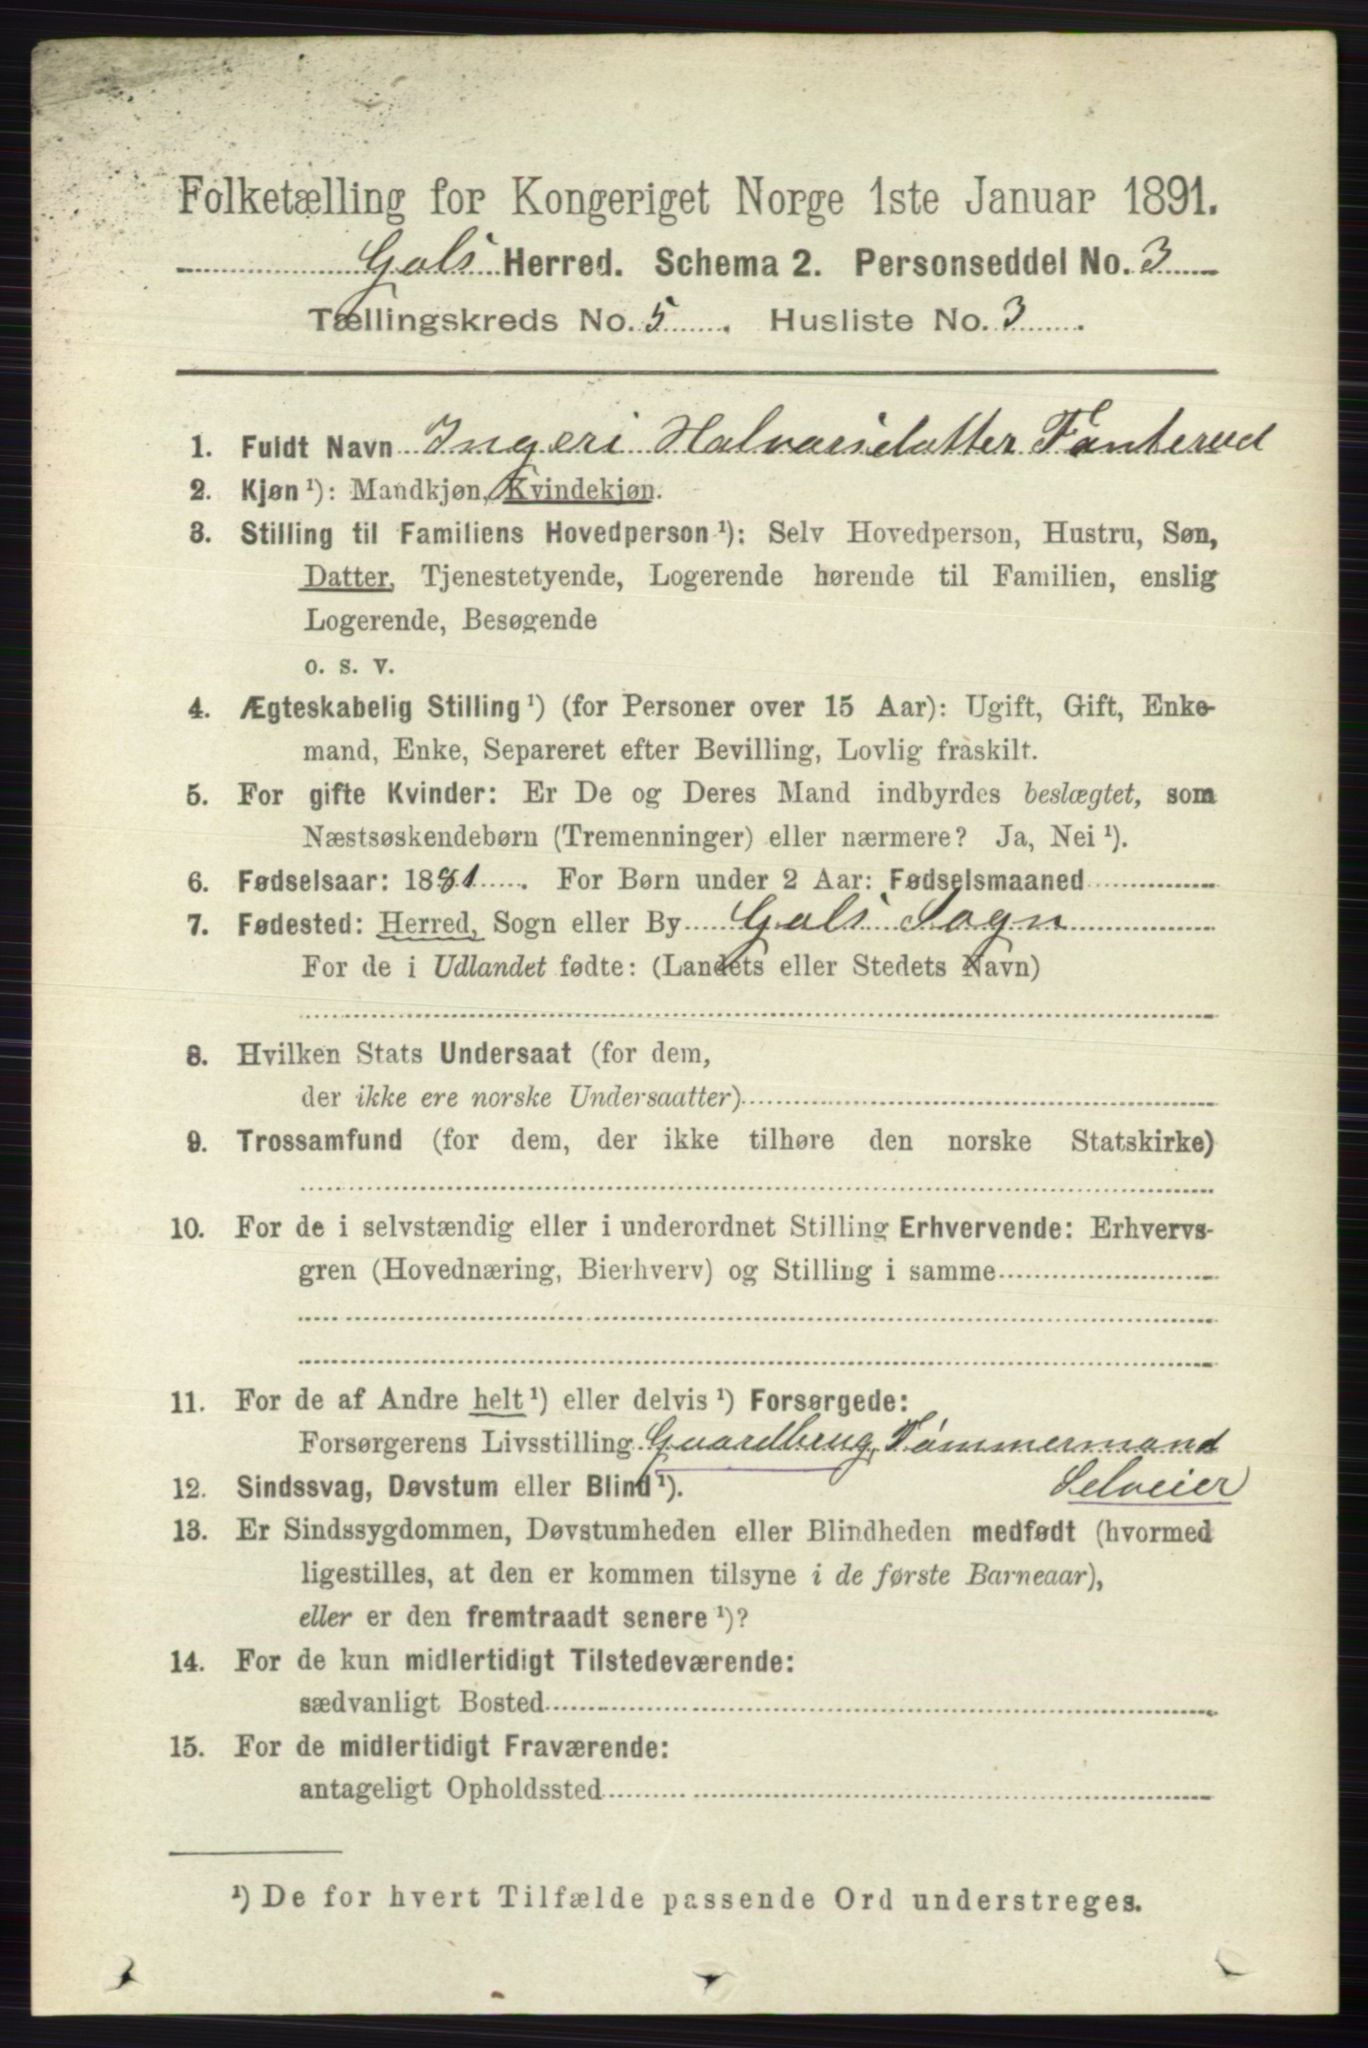 Folketælling for Kongeriget Norge 1ste Januar 1891.
Gols Herred. Schema 2. Personseddel No. 3
Tællingskreds No. 5. Husliste No. 3.
1. Fuldt Navn Ingeri Halvorsdatter Fanterud
2. Kjøn ¹): Mandkjøn, Kvindekjøn.
3. Stilling til Familiens Hovedperson ¹): Selv Hovedperson, Hustru, Søn,
Datter, Tjenestetyende, Logerende hørende til Familien, enslig
Logerende, Besøgende
o. s. v.
4. Ægteskabelig Stilling ¹) (for Personer over 15 Aar): Ugift, Gift, Enke-
mand, Enke, Separeret efter Bevilling, Lovlig fraskilt.
5. For gifte Kvinder: Er De og Deres Mand indbyrdes beslægtet, som
Næstsøskendebørn (Tremenninger) eller nærmere? Ja, Nei ¹).
6. Fødselsaar: 1881. For Børn under 2 Aar: Fødselsmaaned
7. Fødested: Herred, Sogn eller By Gols Sogn
For de i Udlandet fødte: (Landets eller Stedets Navn)
8. Hvilken Stats Undersaat (for dem,
der ikke ere norske Undersaatter)
9. Trossamfund (for dem, der ikke tilhøre den norske Statskirke)
10. For de i selvstændig eller i underordnet Stilling Erhvervende: Erhvervs-
gren (Hovednæring, Bierhverv) og Stilling i samme
11. For de af Andre helt ¹) eller delvis ¹) Forsørgede:
Forsørgerens Livsstilling Gaardbrug, Tømmermand
Selveier
12. Sindssvag, Døvstum eller Blind ¹).
13. Er Sindssygdommen, Døvstumheden eller Blindheden medfødt (hvormed
ligestilles, at den er kommen tilsyne i de første Barneaar),
eller er den fremtraadt senere ¹)?
14. For de kun midlertidigt Tilstedeværende:
sædvanligt Bosted
15. For de midlertidigt Fraværende:
antageligt Opholdssted
¹) De for hvert Tilfælde passende Ord understreges.